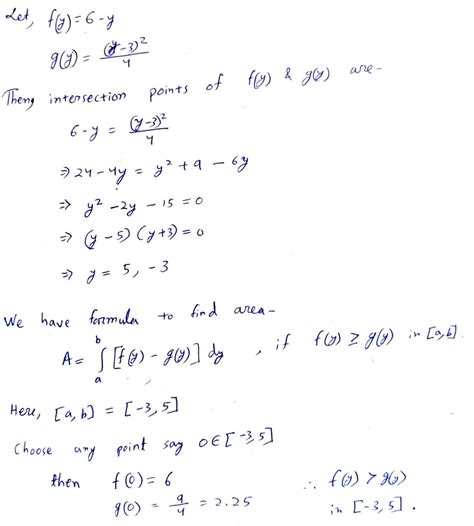 Let, f(y) = 6 - y
g(y) = (y-3)²/4
Theng intersection points of f(y) & g(y) are-
6-y = (y-3)²/4
⇒ 24 - 4y = y² + 9 - 6y
⇒ y² - 2y - 15 = 0
⇒ (y-5)(y+3) = 0
⇒ y = 5, -3
We have formula to find area-
A = ∫_a^b [f(y) - g(y)] dy , if f(y) ≥ g(y) in [a,b].
Here, [a,b] = [-3,5]
Choose any point say 0 ∈ [-3,5]
then f(0) = 6
g(0) = 9/4 = 2.25
∴ f(y) > g(y)
in [-3,5].